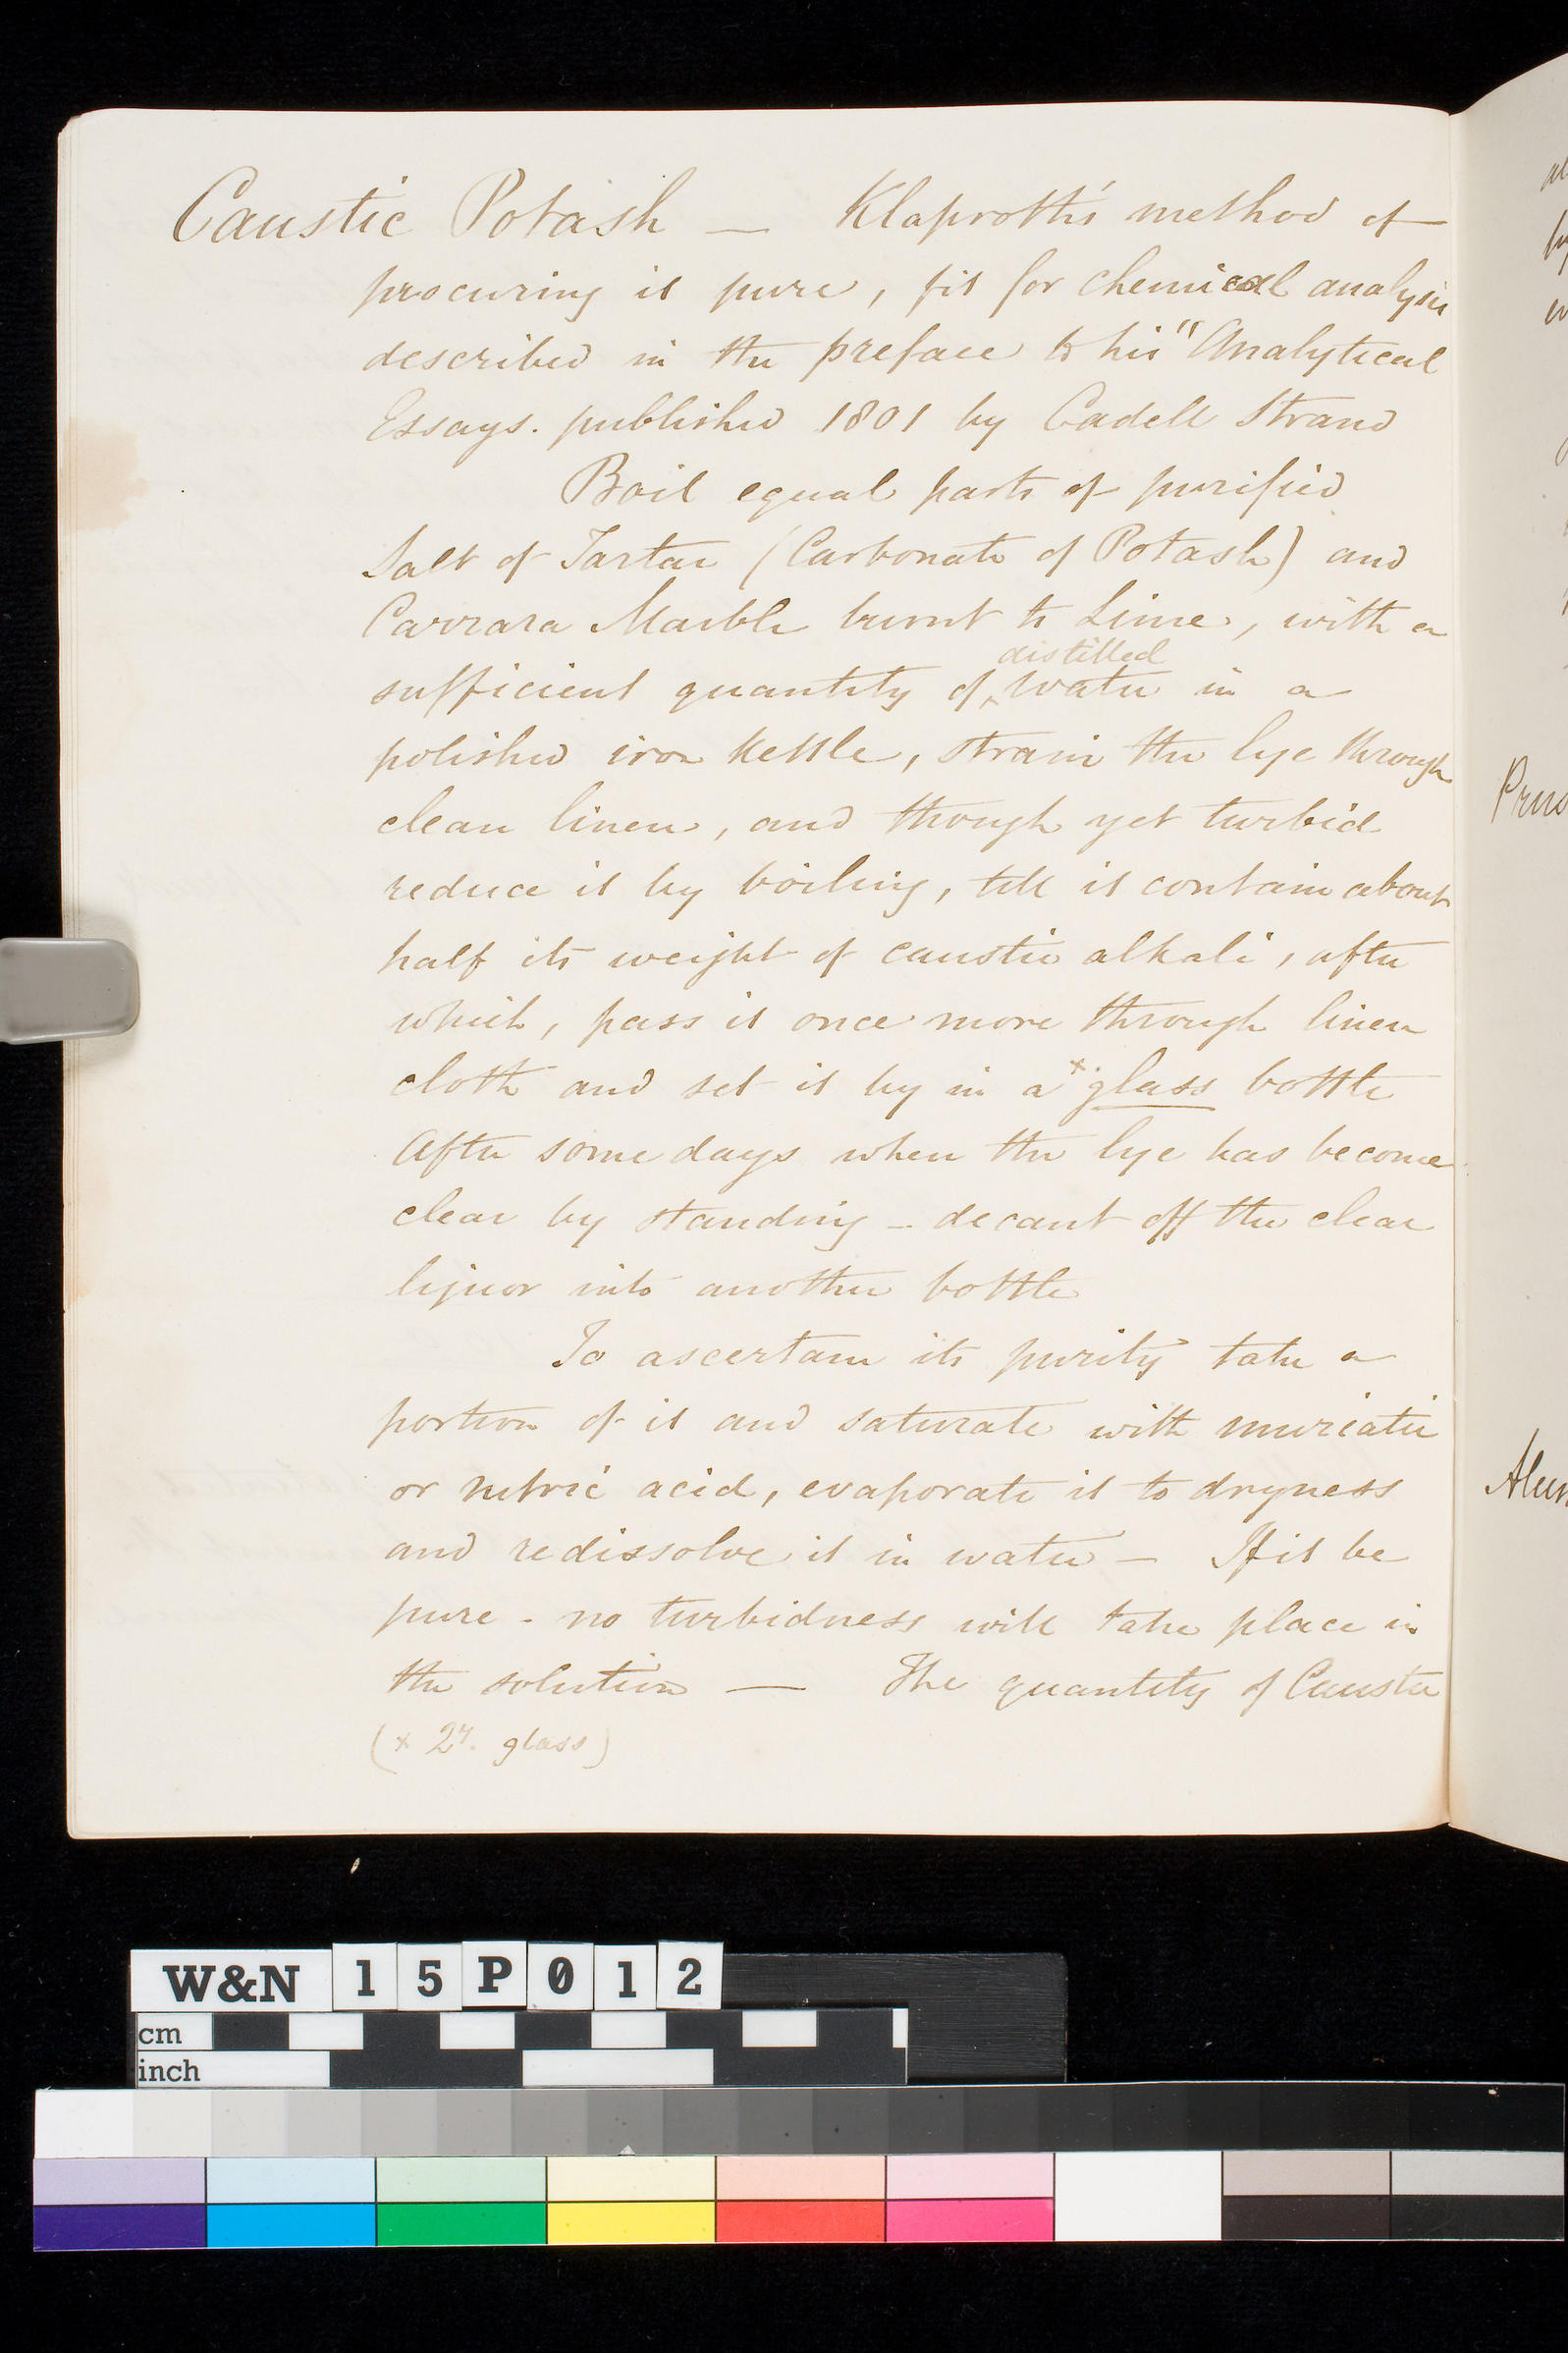 Caustic Potash — Klaproth's method of
procuring it pure, fit for chemical analysis
described in the preface to his "Analytical
Essays. published 1801 by Cadell Strand
Boil equal parts of purified
Salt of Tartar (Carbonate of Potash) and
Carrara Marble burnt to Lime, with a
distilled
sufficient quantity of ‸ water in a
polished iron kettle, strain the lye through
clean linen, and though yet turbid
reduce it by boiling, till it contain about
half its weight of caustic alkali, after
which, pass it once more through linen
cloth and set it by in a x glass bottle
After some days when the lye has become
clear by standing – decant off the clear
liquor into another bottle
To ascertain its purity take a
portion of it and saturate with muriatic
or nitric acid, evaporate it to dryness
and redissolve it in water – If it be
pure - no turbidness will take place in
the solution — The quantity of Caustic
(x 2y. glass)
Prus
Alum
W&N 15P012
cm
inch